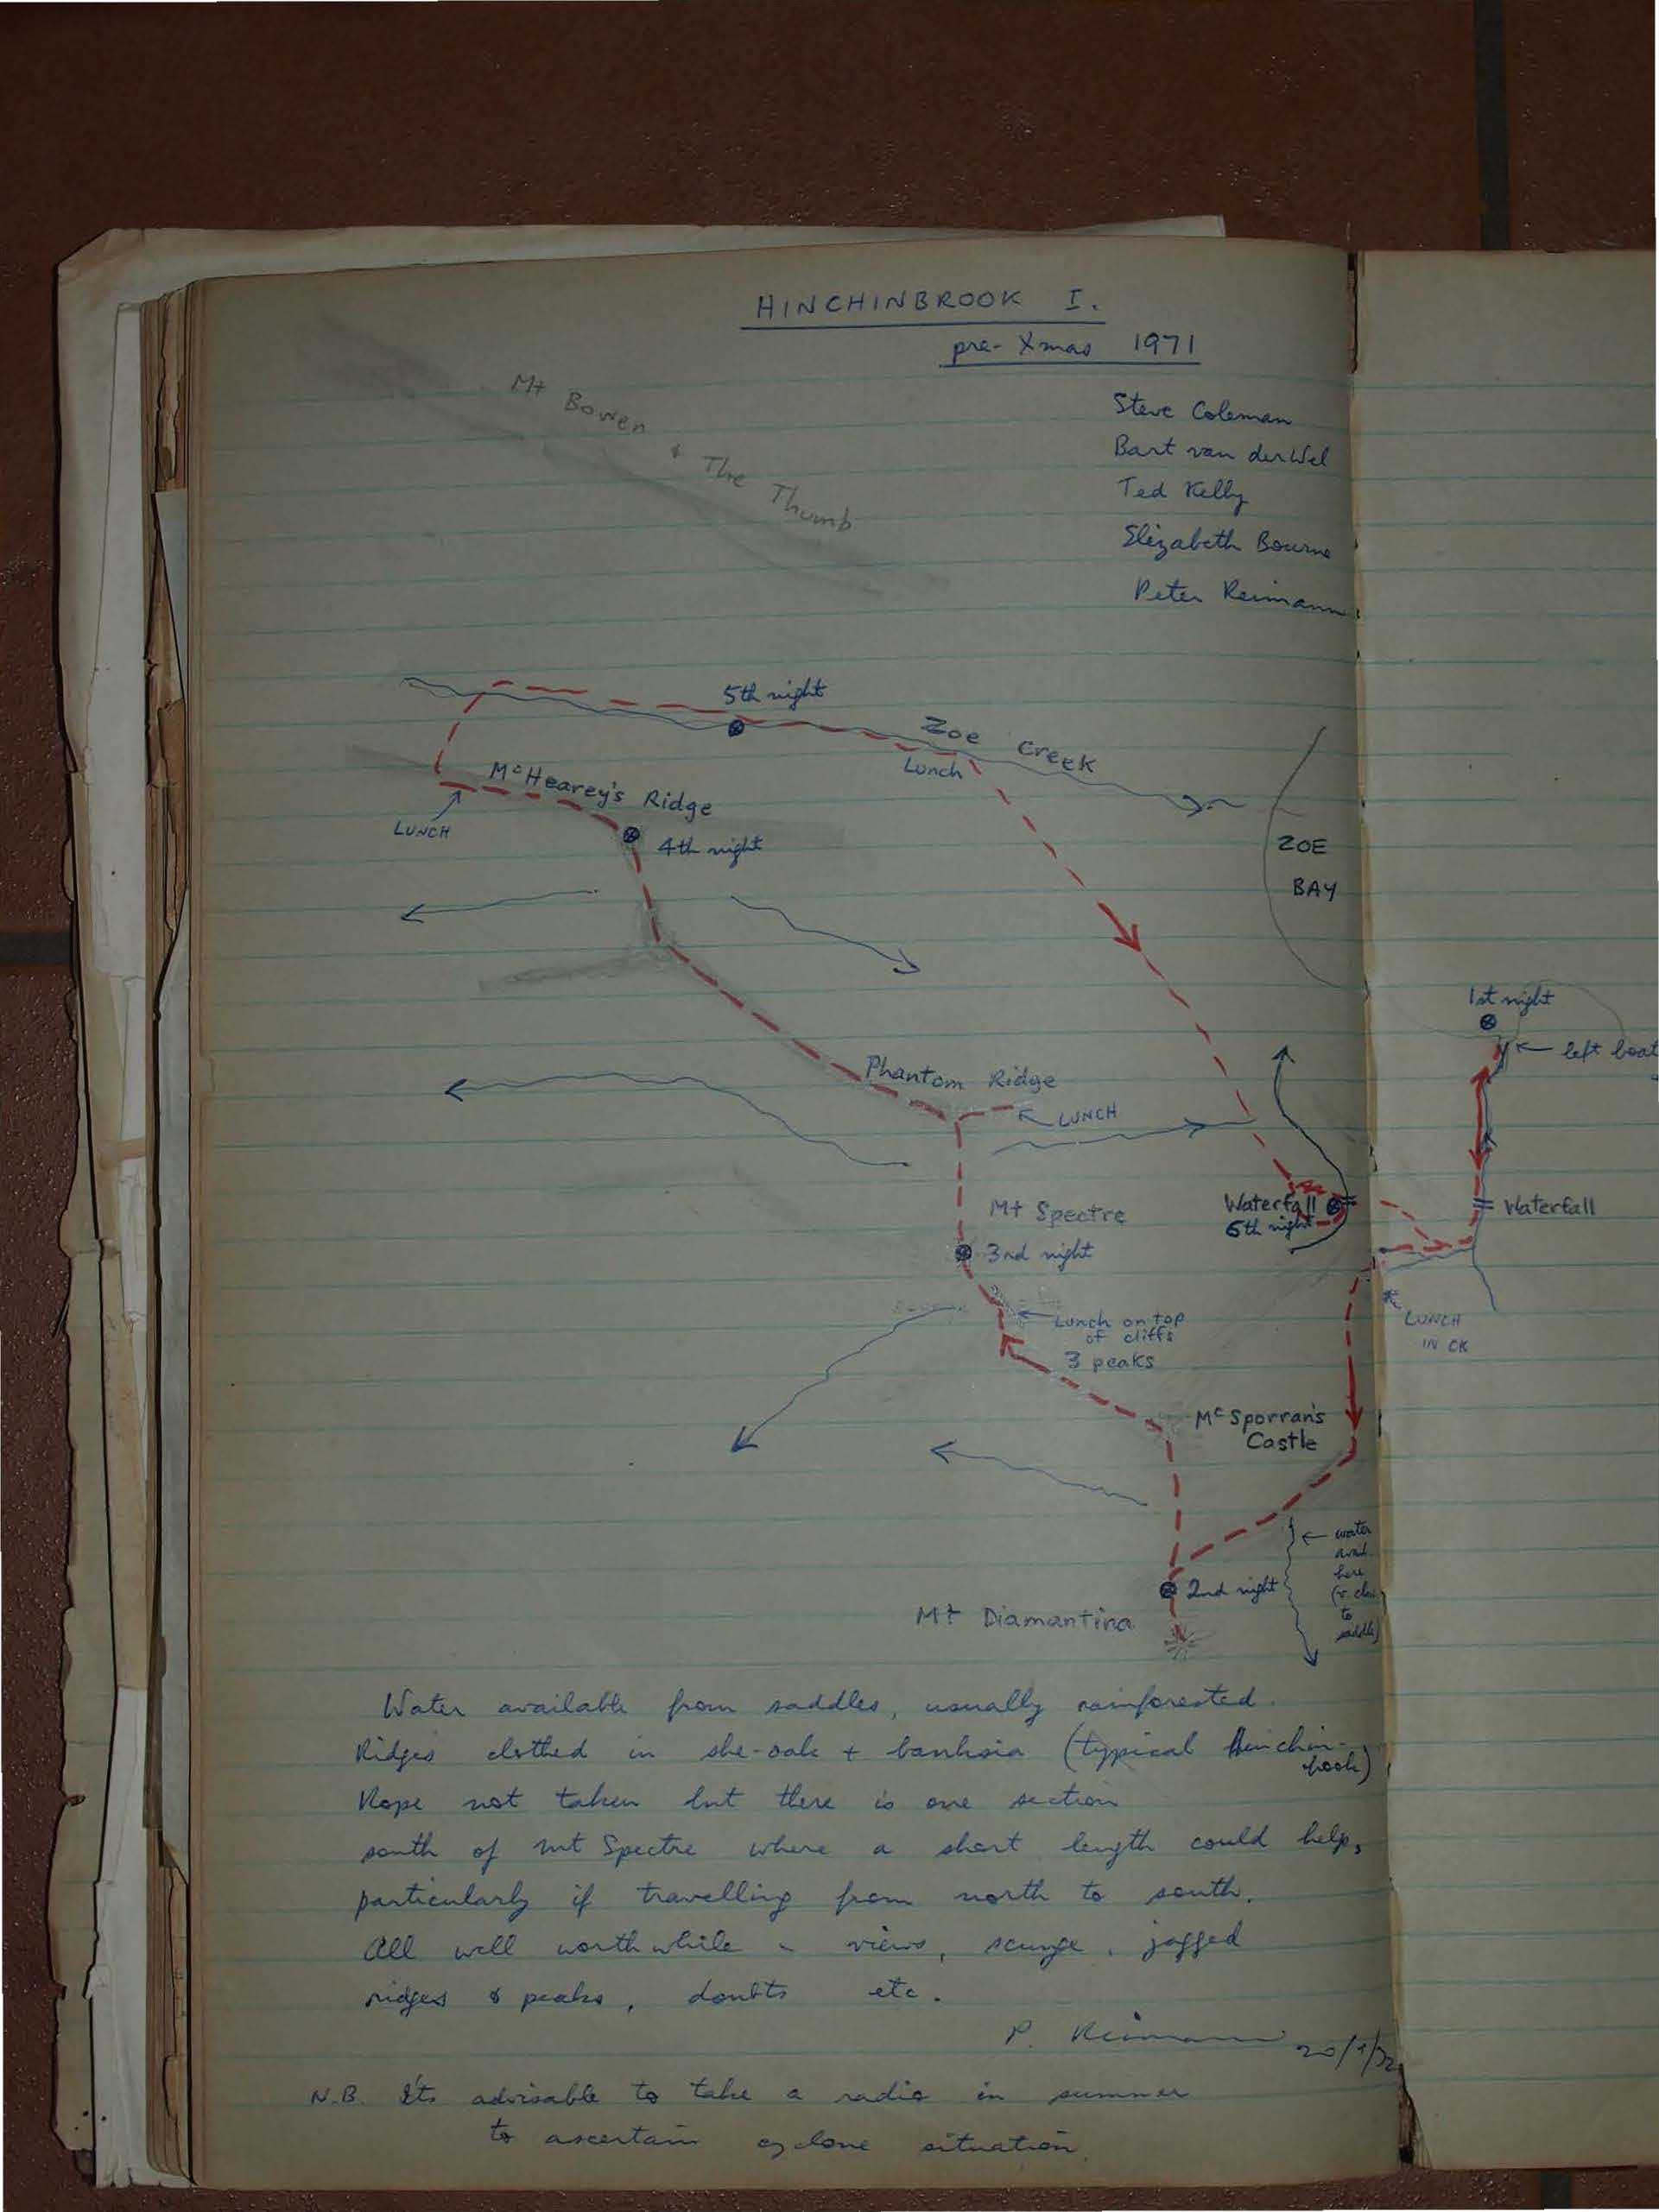 HINCHINBROOK I.
pre-Xmas 1971
Mt Bowen & The Thumb
Steve Coleman
Bart van der Wel
Ted Kelly
Elizabeth Bourne
Peter Reimann
5th night
Zoe Creek
Lunch
McHearey's Ridge
LUNCH
4th night
ZOE
BAY
1st night
left boat
Phantom Ridge
LUNCH
Mt Spectre
Waterfall
6th night
Waterfall
3nd night
Lunch on top
of cliffs
3 peaks
LUNCH
IN CK
McSporran's
Castle
water
avail.
here
(v. close
to
saddle)
2nd night
Mt Diamantina
Water available from saddles, usually rainforested.
Ridges clothed in she-oak + banksia (typical Hinchin-
brook)
Rope not taken but there is one section
south of Mt Spectre where a short length could help,
particularly if travelling from north to south.
All well worthwhile - views, scunge, jagged
ridges & peaks, doubts etc.
P. Reimann 20/1/72
N.B. It's advisable to take a radio in summer
to ascertain cyclone situation.